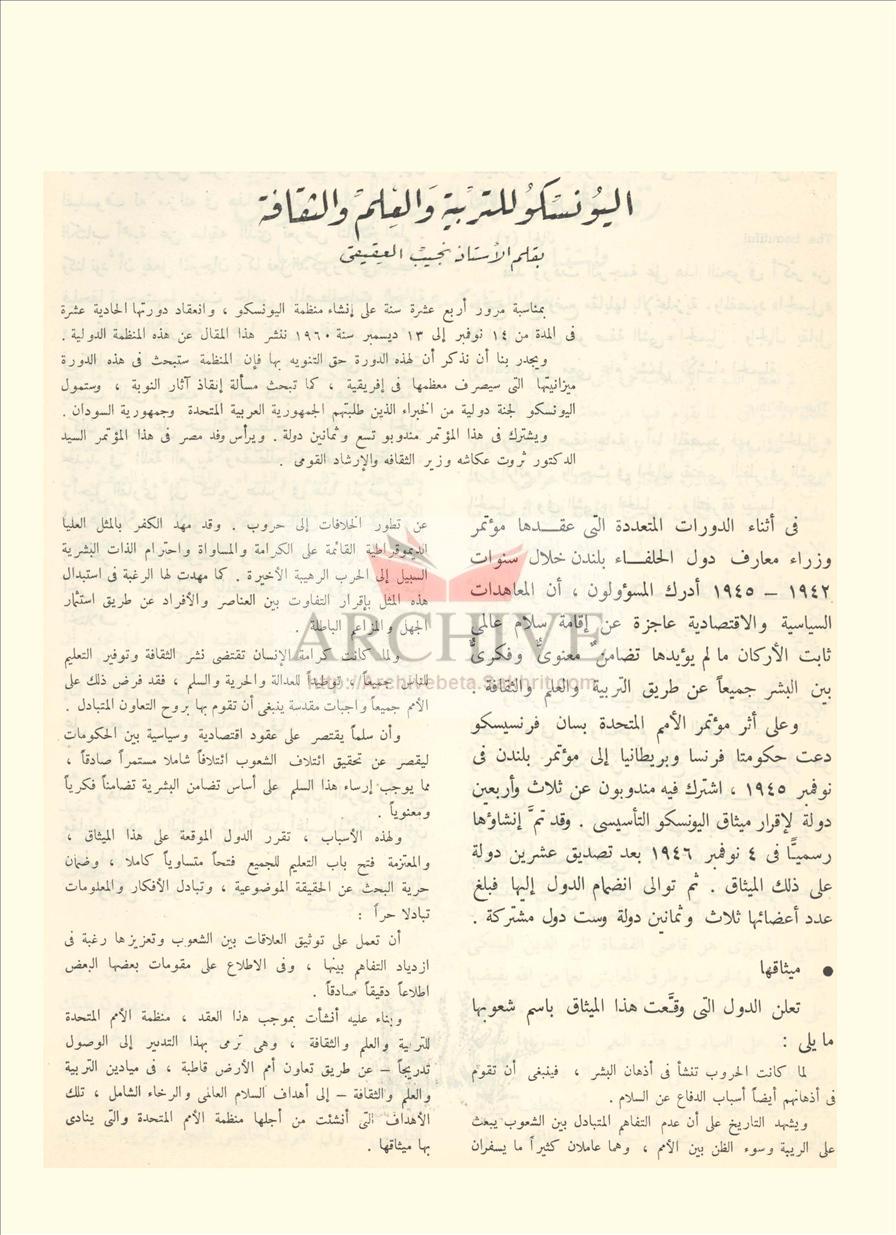 اليونسكو للتربية والعلم والثقافة
بقلم الأستاذ نجيب العقيقى
بمناسبة مرور أربع عشرة سنة على إنشاء منظمة اليونسكو ، وانعقاد دورتها الحادية عشرة
فى المدة من ١٤ نوفمبر إلى ١٣ ديسمبر سنة ١٩٦٠ ننشر هذا المقال عن هذه المنظمة الدولية .
ويجدر بنا أن نذكر أن لهذه الدورة حق التنويه بها فإن المنظمة ستبحث فى هذه الدورة
ميزانيتها التى سيصرف معظمها فى إفريقية ، كما تبحث مسألة إنقاذ آثار النوبة ، وستمول
اليونسكو لجنة دولية من الخبراء الذين طلبتهم الجمهورية العربية المتحدة وجمهورية السودان .
ويشترك فى هذا المؤتمر مندوبو تسع وثمانين دولة . ويرأس وفد مصر فى هذا المؤتمر السيد
الدكتور ثروت عكاشه وزير الثقافه والإرشاد القومى .
فى أثناء الدورات المتعددة التى عقـــدها مؤتمر
وزراء معارف دول الحلفـــاء بلندن خلال سنوات
١٩٤٢ – ١٩٤٥ أدرك المسؤولون ، أن المعاهدات
السياسية والاقتصادية عاجزة عن إقامة سلام عالمى
ثابت الأركان ما لم يؤيدها تضامنٌ معنوىٌ وفكرىٌّ
بين البشر جميعاً عن طريق التربية والعلم والثقافة .
وعلى أثر مؤتمر الأمم المتحدة بسان فرنسيسكو
دعت حكومتا فرنسا وبريطانيا إلى مؤتمر بلندن فى
نوفمبر ١٩٤٥ ، اشترك فيه مندوبون عن ثلاث وأربعين
دولة لإقرار ميثاق اليونسكو التأسيسى . وقد تمَّ إنشاؤها
رسميًّا فى ٤ نوفمبر ١٩٤٦ بعد تصديق عشرين دولة
على ذلك الميثاق . ثم توالى انضمام الدول إليها فبلغ
عدد أعضائها ثلاث وثمانين دولة وست دول مشتركة .
● ميثاقها
تعلن الدول التى وقَّعت هذا الميثاق باسم شعوبها
ما يلى :
لما كانت الحروب تنشأ فى أذهان البشر ، فينبغى أن تقوم
فى أذهانهم أيضاً أسباب الدفاع عن السلام .
ويشهد التاريخ على أن عدم التفاهم المتبادل بين الشعوب يبعث
على الريبة وسوء الظن بين الأمم ، وهما عاملان كثيراً ما يسفران
عن تطور الخلافات إلى حروب . وقد مهد الكفر بالمثل العليا
الديموقراطية القائمة على الكرامة والمساواة واحترام الذات البشرية
السبيل إلى الحرب الرهيبة الأخيرة . كما مهدت لها الرغبة فى استبدال
هذه المثل بإقرار التفاوت بين العناصر والأفراد عن طريق استثمار
الجهل والمزاعم الباطلة .
ولما كانت كرامة الإنسان تقتضى نشر الثقافة وتوفير التعليم
للناس جميعاً ، توطيداً للعدالة والحرية والسلم ، فقد فرض ذلك على
الأمم جميعاً واجبات مقدسة ينبغى أن تقوم بها بروح التعاون المتبادل .
وأن سلماً يقتصر على عقود اقتصادية وسياسية بين الحكومات
ليقصر عن تحقيق ائتلاف الشعوب ائتلافاً شاملا مستمراً صادقاً ،
مما يوجب إرساء هذا السلم على أساس تضامن البشرية تضامناً فكرياً
ومعنوياً .
ولهذه الأسباب ، تقرر الدول الموقعة على هذا الميثاق ،
والمعتزمة فتح باب التعليم للجميع فتحاً متساوياً كاملا ، وضمان
حرية البحث عن الحقيقة الموضوعية ، وتبادل الأفكار والمعلومات
تبادلا حراً :
أن تعمل على توثيق العلاقات بين الشعوب وتعزيزها رغبة فى
ازدياد التفاهم بينها ، وفى الاطلاع على مقومات بعضها البعض
اطلاعاً دقيقاً صادقاً .
وبناء عليه أنشأت بموجب هذا العقد ، منظمة الأمم المتحدة
للتربية والعلم والثقافة ، وهى ترمى بهذا التدبير إلى الوصول
تدريجاً – عن طريق تعاون أمم الأرض قاطبة ، فى ميادين التربية
والعلم والثقافة – إلى أهداف السلام العالمى والرخاء الشامل ، تلك
الأهداف التى أنشئت من أجلها منظمة الأمم المتحدة والتى ينادى
بها ميثاقها .
ARCHIVE
http://Archivebeta.Sakhrit.com